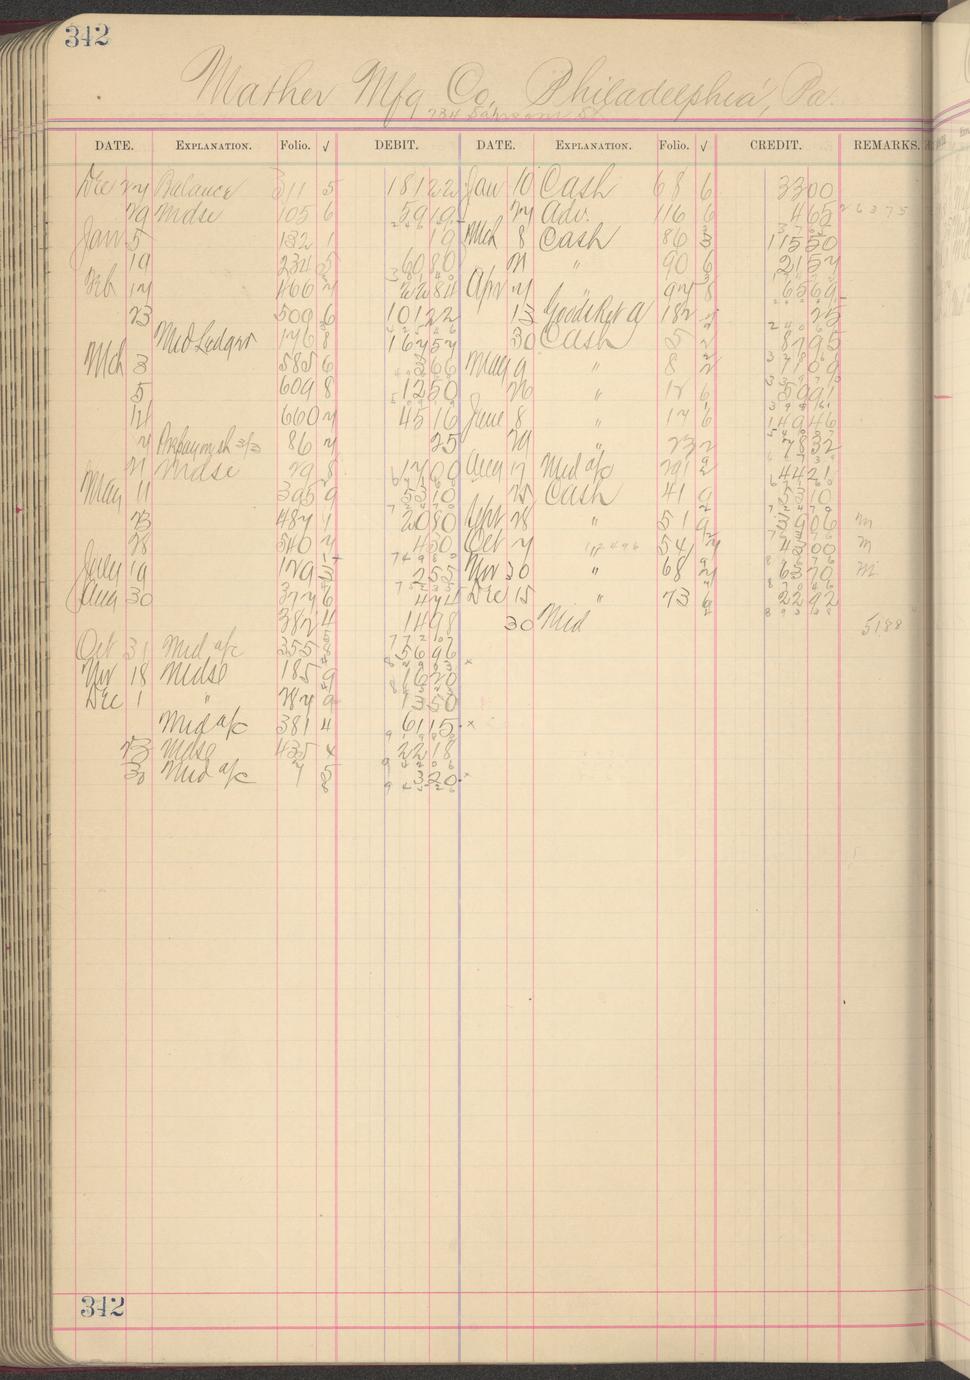 342
Mather Mfg Co, Philadelphia, Pa.
734 Sansom St.
DATE. EXPLANATION. Folio. √ DEBIT. DATE. EXPLANATION. Folio. √ CREDIT. REMARKS.
Dec 27 Balance 311 5 181 22 Jan 10 Cash 68 6 33 00
29 Mdse 105 6 59 19 27 Adv. 116 6 4 65 26375
Jan 5 132 1 19 Mch 8 Cash 86 3 115 50
19 234 5 60 80 21 " 90 6 21 57
Feb 17 466 7 22 84 Apr 7 97 8 65 69
23 509 6 101 22 13 Goods Ret a 182 25
Md Ledger 146 8 167 57 30 Cash 5 2 87 95
Mch 3 585 6 3 66 May 9 " 8 2 71 09
5 609 8 12 50 26 " 12 6 59 91
14 660 7 45 16 June 8 " 17 6 149 46
7 Prepay mch 3/3 86 7 25 29 " 23 2 78 32
21 Mdse 29 8 17 00 Aug 17 Md a/c 291 2 44 21
May 11 395 9 53 10 25 Cash 41 9 53 10
23 487 1 20 80 Sept 28 " 51 9 39 06 m
28 540 7 4 50 Oct 7 54 43 00 m
July 19 129 3 2 55 Nov 30 " 68 2 63 70 m
Aug 30 377 6 4 74 Dec 15 " 73 6 22 92
382 4 14 98 30 Md 51.88
Oct 31 Md a/c 355 8 56 96
Nov 18 Mdse 185 9 16 20
Dec 1 " 287 9 13 50
Md a/c 381 4 61 15 x
23 Mdse 435 4 22 18
30 Md a/c 7 5 3 20 x
342